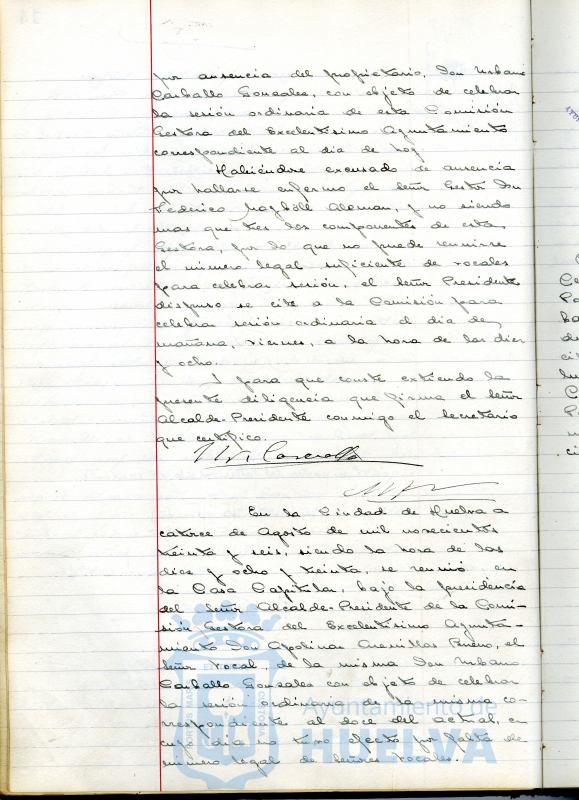 por ausencia del propietario, Don Urbano
Carballo Gonzalez, con objeto de celebrar
la sesión ordinaria de esta Comisión
Gestora del Excelentísimo Ayuntamiento
correspondiente al dia de hoy
Habiéndose excusado de ausencia
por hallarse enfermo el Señor Gestor Don
Federico Aleman, y no siendo
mas que tres los componentes de esta
Gestora, por lo que no puede reunirse
el número legal suficiente de vocales
para celebrar sesión, el Señor Presidente
dispuso se cite a la Comisión para
celebrar sesión ordinaria el dia de
mañana, viernes, a la hora de las diez
y ocho.
I para que conste extiendo la
presente diligencia que firma el Señor
Alcalde-Presidente conmigo el Secretario
que certifico.
En la Ciudad de Huelva a
catorce de Agosto de mil novecientos
treinta y seis, siendo la hora de las
diez y ocho y treinta, se reunió en
la Casa Capitular, bajo la presidencia
del Señor Alcalde-Presidente de la Comi-
sión Gestora del Excelentísimo Ayunta-
miento Don Apolinar Arenillas Bueno, el
Señor Vocal, de la misma Don Urbano
Carballo Gonzales con objeto de celebrar
la sesión ordinaria de la misma co-
rrespondiente al doce del actual, en
cuyo dia no tuvo efecto por falta de
número legal de Señores Vocales.
Ayuntamiento de
HUELVA